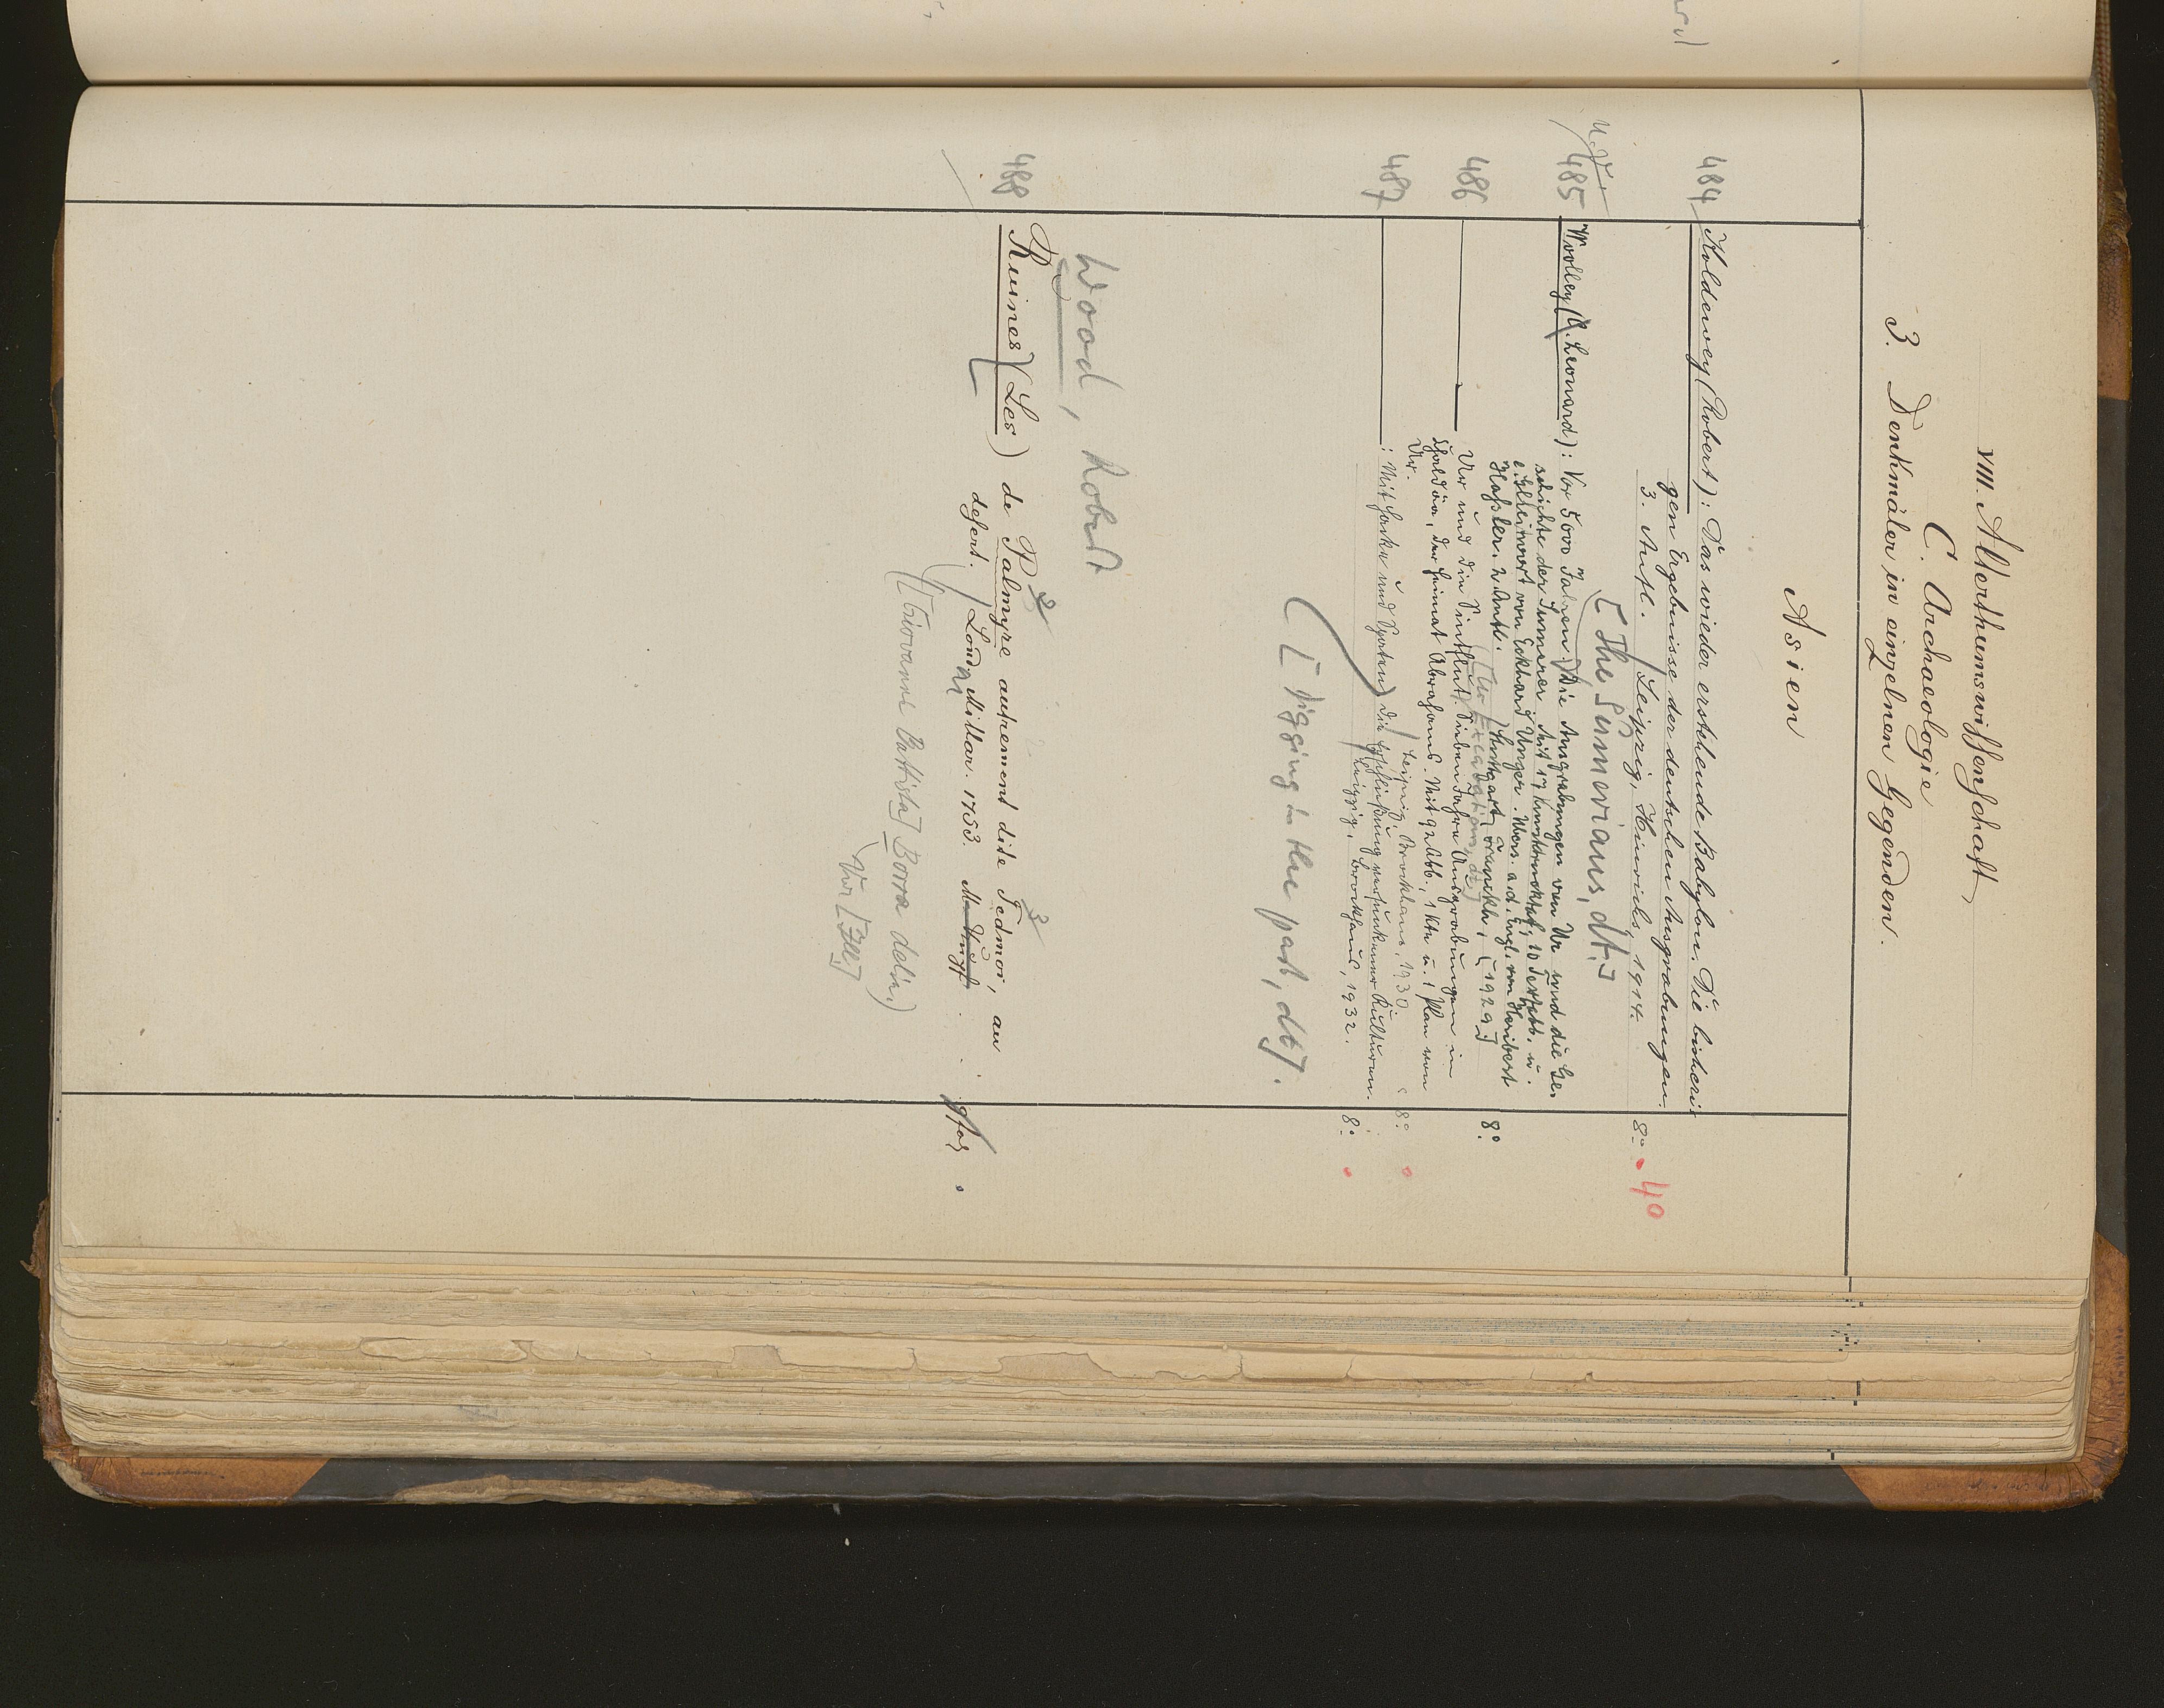 XIII. Alterthumswissenschaft
C. Archaeologie
3. Denkmäler in einzelnen Gegenden.
Asien
484 Koldewey (Robert): Das wieder erstehende Babylon. Die bisheri-
gen Ergebnisse der deutschen Ausgrabungen.
3. Aufl. Leipzig, Hinrichs, 1914. 8° 40
[The Sumerians, dt.]
485 Woolley (C. Leonard): Vor 5000 Jahren. Die Ausgrabungen von Ur und die Ge-
schichte der Sumerer. Mit 17 Kunstdrucktaf., 10 Textabb. u.
e. Geleitwort von Eckhard Unger. Übers. a. d. Engl. von Heribert
Hassler. 2. Aufl. Stuttgart, Franckh, [1929] 8°
[Ur Excavations, dt.]
486 Ur und die Sintflut. Sieben Jahre Ausgrabungen in
Chaldäa, der Heimat Abrahams. Mit 92 Abb., 1 Kte u. 1 Plan von
Ur. Leipzig, Brockhaus, 1930. 8°
487 : Mit Hacke und Spaten. Die Erschließung versunkener Kulturen.
Leipzig, Brockhaus, 1932. 8°
[Digging in the past, dt].
Wood, Robert
488 Ruines (Les) de Palmyre autrement dite Tedmor, au
desert. Londr Millar. 1753.
([Giovanni Battista] Borra delin.)